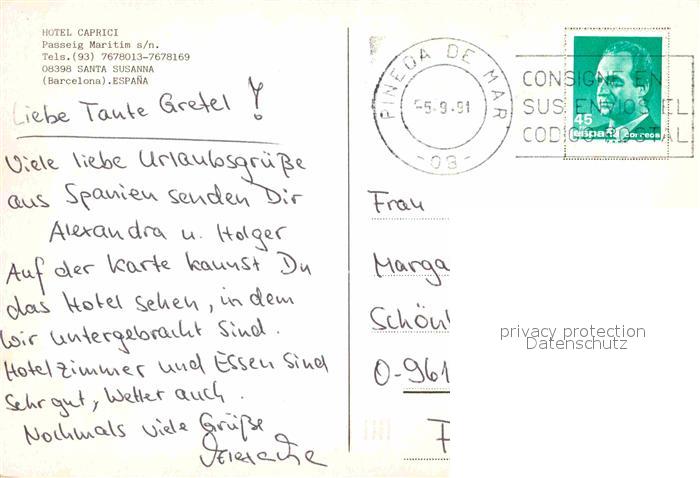 HOTEL CAPRICI
Passeig Maritim s/n.
Tels.(93) 7678013-7678169
08398 SANTA SUSANNA
(Barcelona).ESPAÑA
Liebe Tante Gretel !
Viele liebe Urlaubsgrüße
aus Spanien senden Dir
Alexandra u. Holger
Auf der Karte kannst Du
das Hotel sehen, in dem
wir untergebracht sind.
Hotelzimmer und Essen sind
sehr gut, Wetter auch.
Nochmals viele Grüße
PINEDA DE MAR
-5-9-91
-08-
CONSIGNE EN
SUS ENVIOS EL
CODIGO POSTAL
45
españa correos
Frau
Marga
Schön
O-961
F
privacy protection
Datenschutz